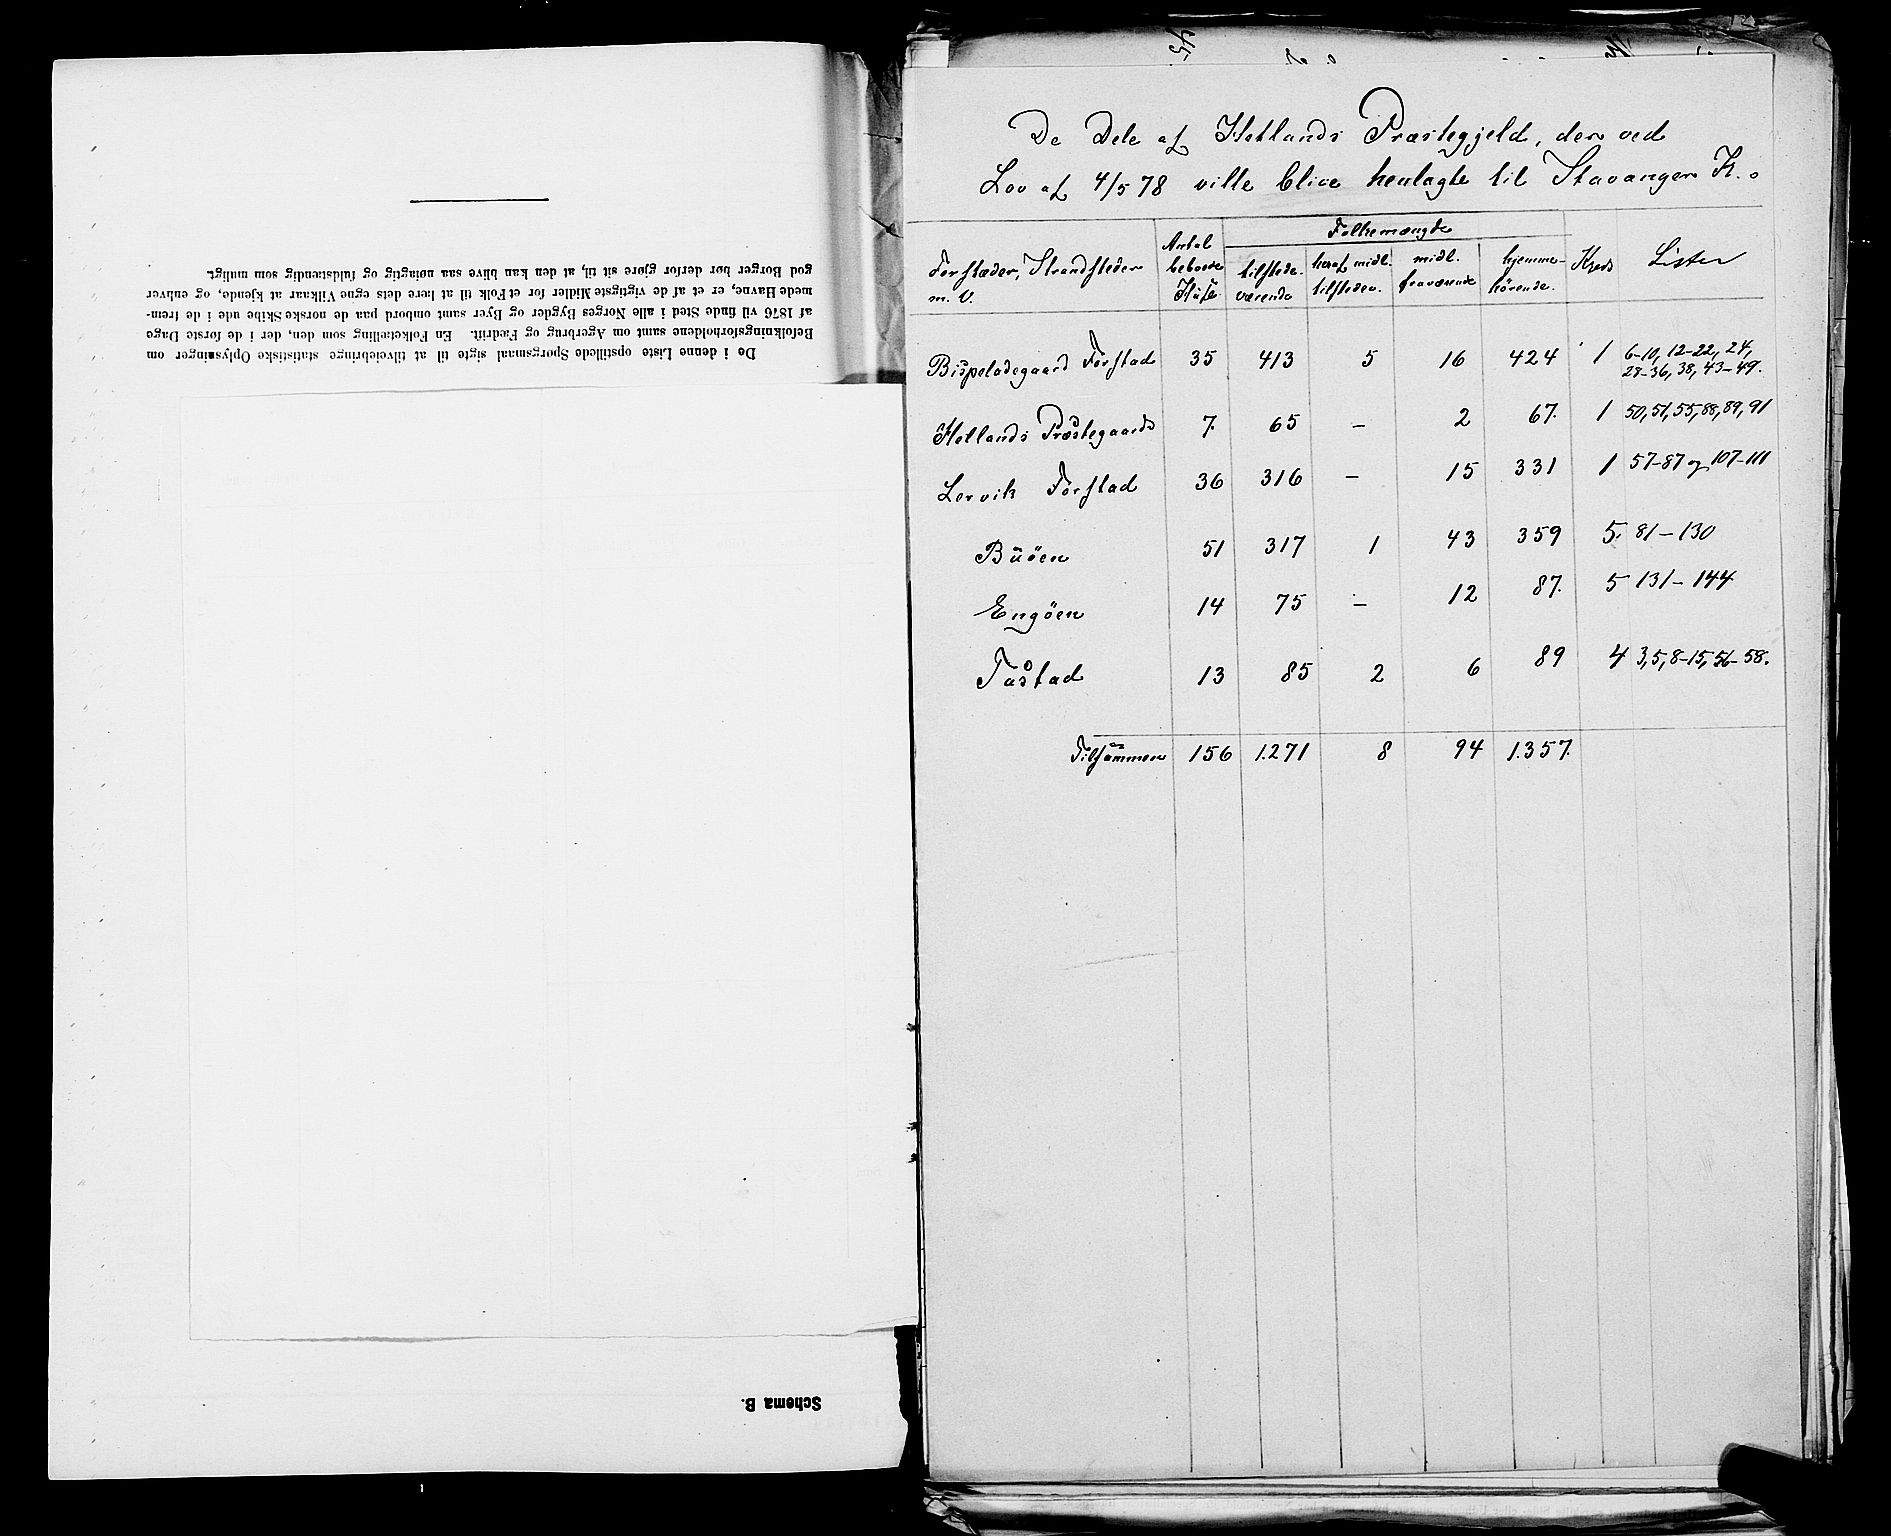 De i denne Liste opstillede Spørgsmaal sigte til at tilveiebringe statistiske Oplysninger om
Befolkningsforholdene samt om Agerbrug og Fædrift. En Folketælling som den, der i de første Dage
af 1876 vil finde Sted i alle Norges Bygder og Byer samt ombord paa de norske Skibe ude i de frem-
mede Havne, er et af de vigtigste Midler for et Folk til at lære dets egne Vilkaar at kjende, og enhver
god Borger bør derfor gjøre sit til, at den kan blive saa nøiagtig og fuldstændig som muligt.
Schema B.
De Dele af Hetlands Præstegjeld, der ved
Lov af 4/5 78 ville blive henlagte til Stavanger K.
Forstæder, Strandsteder m. V. | Antal beboede Huse | Folkemængde | Kreds | Lister
tilstede-værende | heraf midl. tilstedev. | midl. fraværende | hjemme-hörende.
Bispeladegaard Forstad 35 413 5 16 424 1 6-10, 12-22, 24,
28-36, 38, 43-49.
Hetlands Præstegaards 7. 65 – 2 67. 1 50, 51, 55, 88, 89, 91
Lervik Forstad 36 316 – 15 331 1 57-87 og 107-111
Buöen 51 317 1 43 359 5. 81-130
Engöen 14 75 – 12 87. 5 131-144
Tastad 13 85 2 6 89 4 3, 5, 8-15, 56-58.
Tilsammen 156 1.271 8 94 1.357.